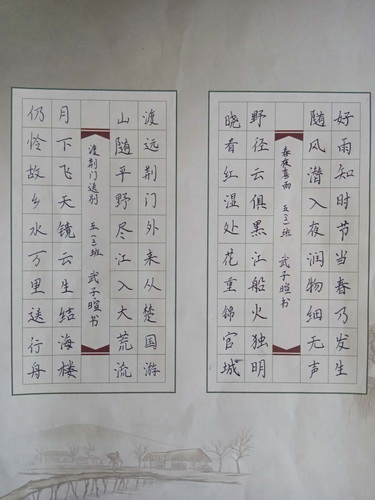 好雨知时节当春乃发生
随风潜入夜润物细无声
春夜喜雨 五(三)班 武子暄书
野径云俱黑江船火独明
晓看红湿处花重锦官城
渡远荆门外来从楚国游
山随平野尽江入大荒流
渡荆门送别 五(三)班 武子暄书
月下飞天镜云生结海楼
仍怜故乡水万里送行舟